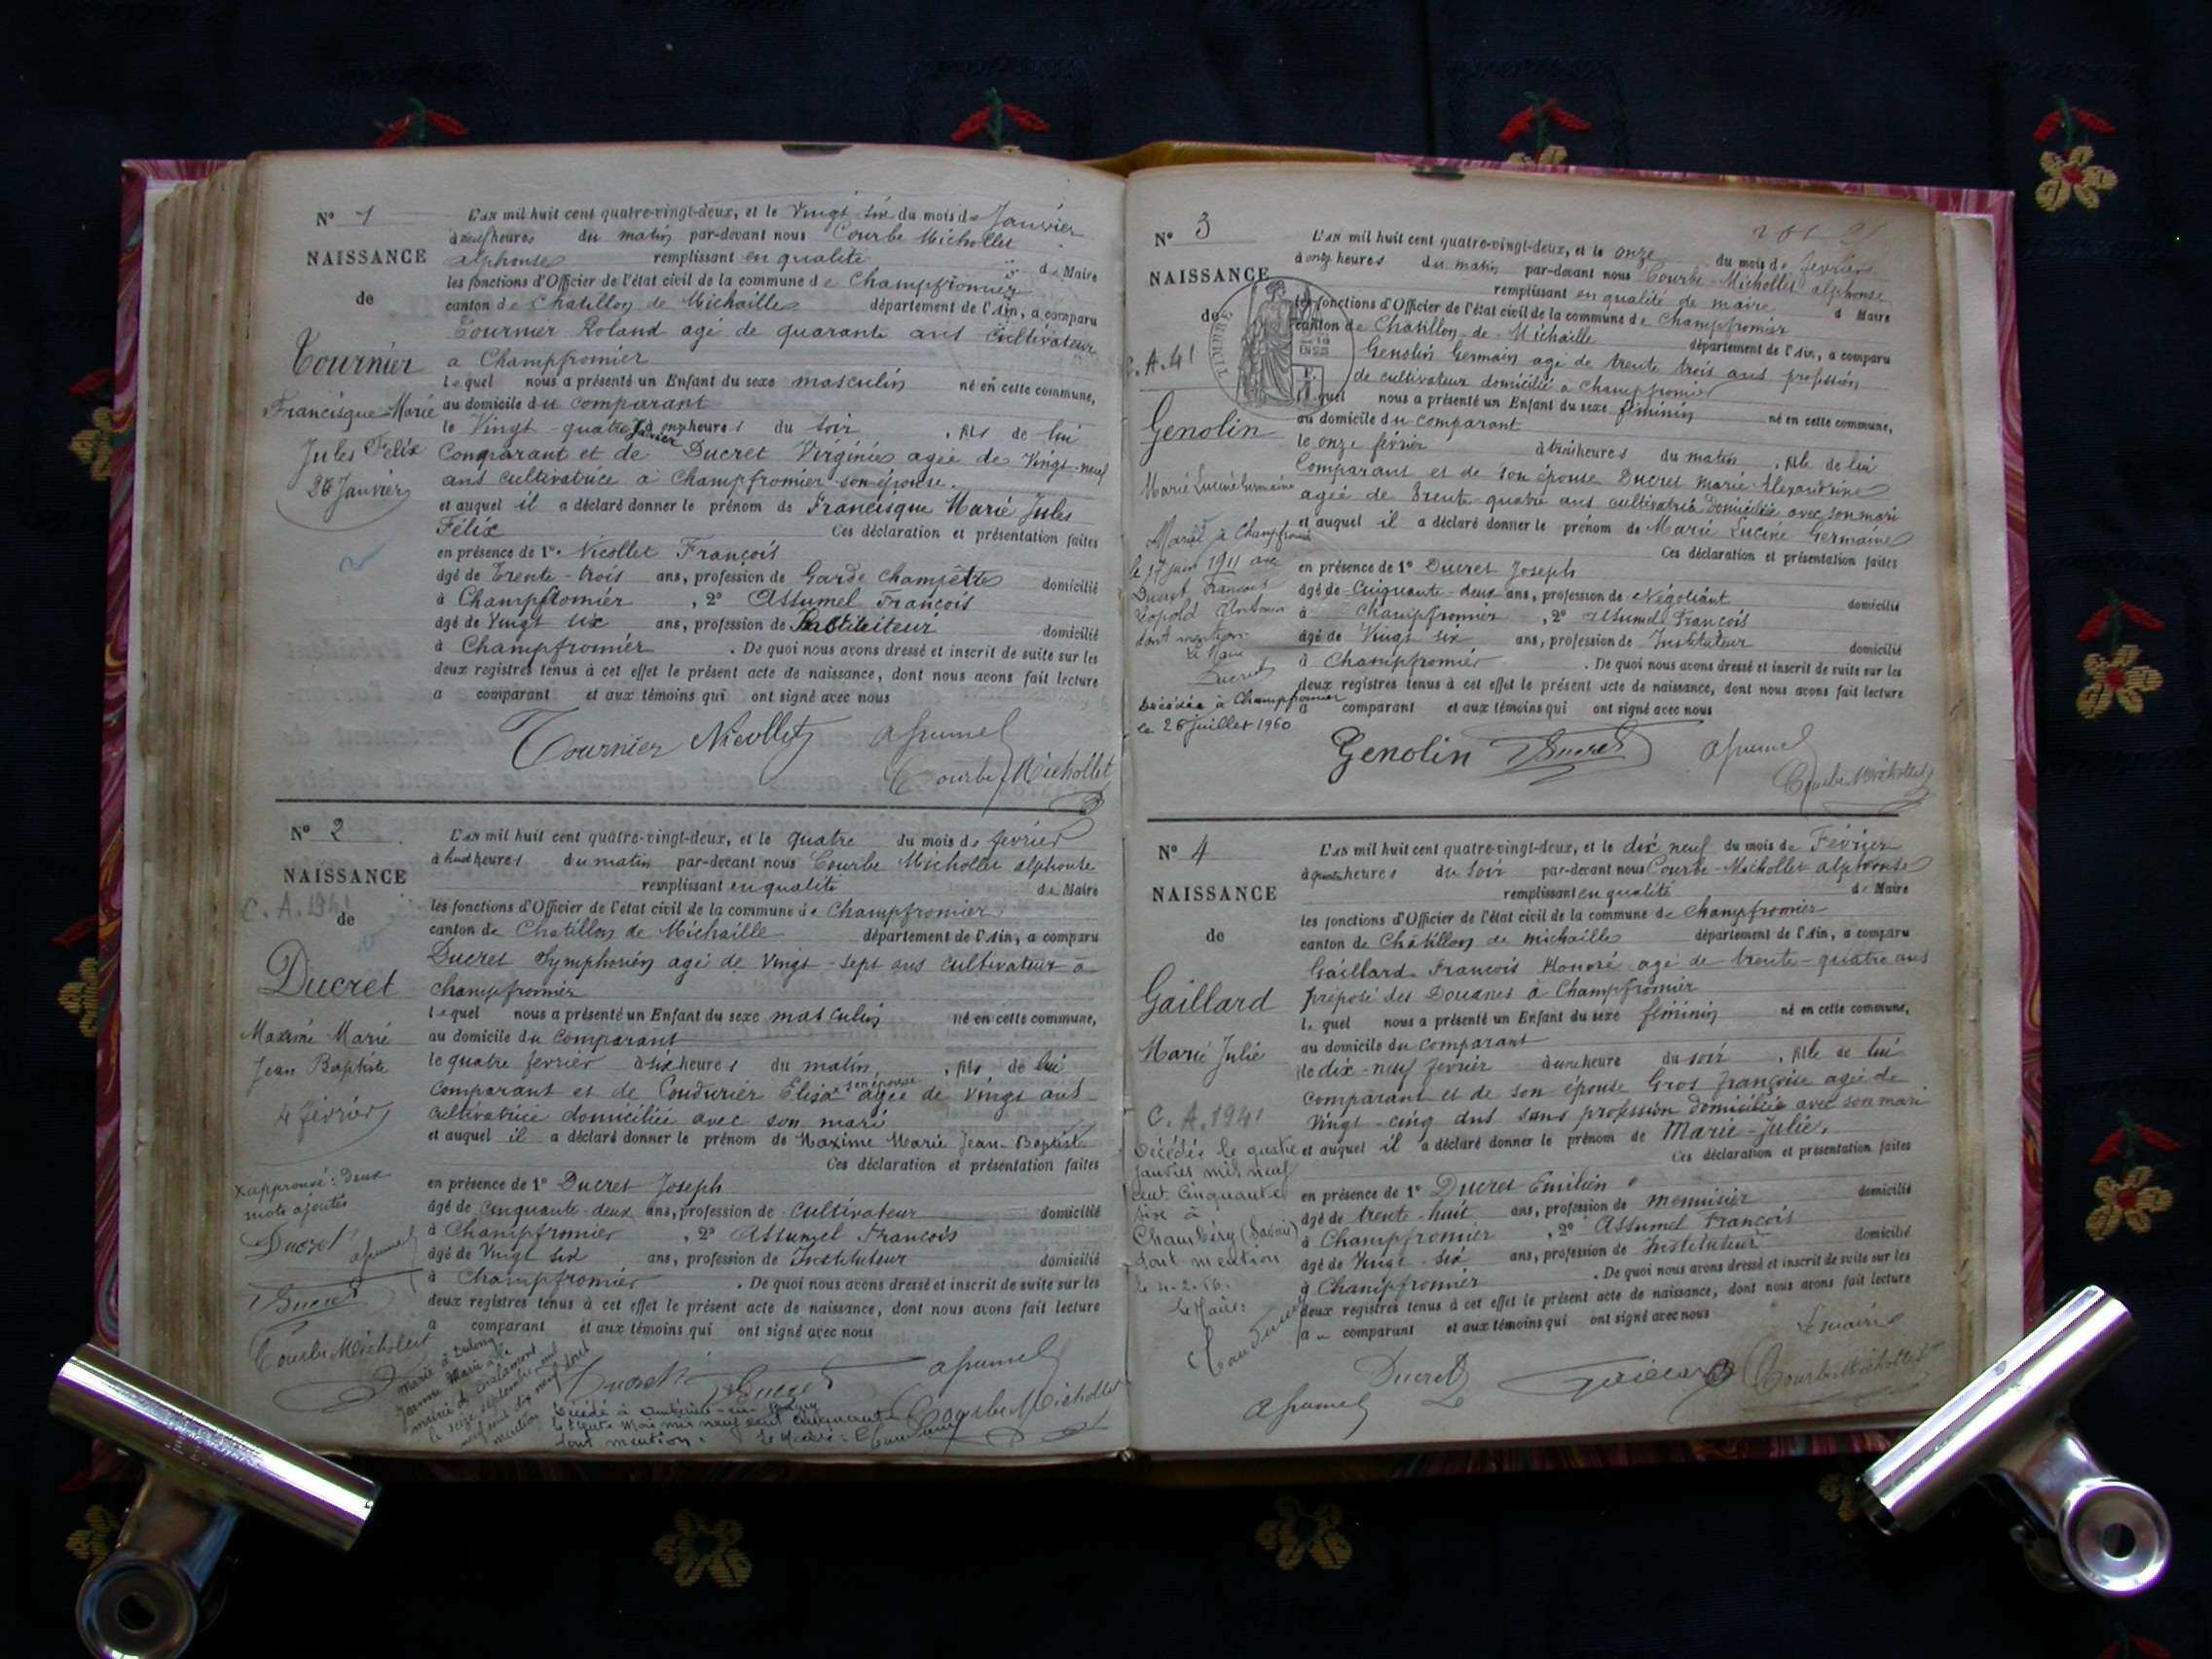 N° 1
NAISSANCE
de
Tournier
Francisque-Marie
Jules Félix
26 Janvier
L'AN mil huit cent quatre-vingt-deux, et le Vingt-six du mois de Janvier
à neuf heures du matin par-devant nous Courbe Michollet
alphonse remplissant en qualité de Maire
les fonctions d'Officier de l'état civil de la commune de Champfromier
canton de Chatillon de Michaille département de l'Ain, a comparu
Tournier Roland agé de quarante ans cultivateur
a Champfromier
lequel nous a présenté un Enfant du sexe masculin né en cette commune,
au domicile du comparant
le Vingt-quatre Janvier à onze heures du soir, fils de lui
Comparant et de Ducret Virginie agée de Vingt-neuf
ans cultivatrice à Champfromier son épouse.
et auquel il a déclaré donner le prénom de Francisque Marie Jules
Félix Ces déclaration et présentation faites
en présence de 1° Nicollet François
âgé de Trente-trois ans, profession de Garde Champêtre domicilié
à Champfromier, 2° Assumel François
âgé de Vingt six ans, profession de Instituteur domicilié
à Champfromier. De quoi nous avons dressé et inscrit de suite sur les
deux registres tenus à cet effet le présent acte de naissance, dont nous avons fait lecture
a comparant et aux témoins qui ont signé avec nous
Tournier Nicollet Assumel
Courbe Michollet
N° 2
NAISSANCE
C. A. 1941
de
Ducret
Maxime Marie
Jean Baptiste
4 février
x approuvé : deux
mots ajoutés
Ducret Assumel
Ducret
Courbe Michollet
L'AN mil huit cent quatre-vingt-deux, et le quatre du mois de fevrier
à huit heures du matin par-devant nous Courbe Michollet alphonse
remplissant en qualité de Maire
les fonctions d'Officier de l'état civil de la commune de Champfromier
canton de Chatillon de Michaille département de l'Ain, a comparu
Ducret Symphorien agé de Vingt-sept ans cultivateur a
champfromier
lequel nous a présenté un Enfant du sexe masculin né en cette commune,
au domicile du comparant
le quatre fevrier à six heures du matin, fils de lui
comparant et de Coudurier Elisa x son épouse agée de vingt ans
cultivatrice domiciliée avec son mari
et auquel il a déclaré donner le prénom de Maxime Marie Jean-Baptiste
Ces déclaration et présentation faites
en présence de 1° Ducret Joseph
âgé de cinquante-deux ans, profession de cultivateur domicilié
à Champfromier, 2° Assumel François
âgé de Vingt six ans, profession de Instituteur domicilié
à Champfromier. De quoi nous avons dressé et inscrit de suite sur les
deux registres tenus à cet effet le présent acte de naissance, dont nous avons fait lecture
a comparant et aux témoins qui ont signé avec nous
Ducret Ducret Assumel
Courbe Michollet
Marié à
Jeanne Marie à la
mairie de Chalamont
le seize septembre mil
neuf cent dix neuf dont
mention
Décédé à Ambérieu-en-Bugey
le trente Mai mil neuf cent cinquante
dont mention. Le Maire :
N° 3
NAISSANCE
de
TIMBRE
C. A. 41
Genolin
Marie Lucine Germaine
Marié à Champfromier
le 17 juin 1911 avec
Ducret François
Léopold
dont mention
Le Maire
Ducret
Décédée à Champfromier
le 26 Juillet 1960
L'AN mil huit cent quatre-vingt-deux, et le onze du mois de fevrier
à onze heures du matin par-devant nous Courbe-Michollet alphonse
remplissant en qualité de maire d Maire
les fonctions d'Officier de l'état civil de la commune de Champfromier
canton de Chatillon de Michaille département de l'Ain, a comparu
Genolin Germain agé de trente trois ans profession
de cultivateur domicilié à Champfromier
lequel nous a présenté un Enfant du sexe féminin né en cette commune,
au domicile du comparant
le onze février à trois heures du matin, fille de lui
Comparant et de son épouse Ducret Marie-Alexandrine
agée de Trente-quatre ans cultivatrice domiciliée avec son mari
et auquel il a déclaré donner le prénom de Marie Lucine Germaine
Ces déclaration et présentation faites
en présence de 1° Ducret Joseph
âgé de Cinquante-deux ans, profession de Négociant domicilié
à Champfromier, 2° Assumel François
âgé de Vingt six ans, profession de Instituteur domicilié
à Champfromier. De quoi nous avons dressé et inscrit de suite sur les
deux registres tenus à cet effet le présent acte de naissance, dont nous avons fait lecture
a comparant et aux témoins qui ont signé avec nous
Genolin Ducret Assumel
Courbe Michollet
N° 4
NAISSANCE
de
Gaillard
Marie Julie
C. A. 1941
Décédée le quatre
janvier mil neuf
cent cinquante
six à
Chambéry (Savoie)
dont mention
le 4-2-56.
Le Maire :
L'AN mil huit cent quatre-vingt-deux, et le dix neuf du mois de Février
à quatre heures du soir par-devant nous Courbe-Michollet alphonse
remplissant en qualité de Maire
les fonctions d'Officier de l'état civil de la commune de Champfromier
canton de Châtillon de michaille département de l'Ain, a comparu
Gaillard François Honoré agé de trente-quatre ans
préposé des Douanes à Champfromier
lequel nous a présenté un Enfant du sexe féminin né en cette commune,
au domicile du comparant
le dix-neuf fevrier à une heure du soir, fille de lui
comparant et de son épouse Gros françoise agée de
vingt-cinq ans sans profession domiciliée avec son mari
et auquel il a déclaré donner le prénom de Marie-Julie.
Ces déclaration et présentation faites
en présence de 1° Ducret Emilien
âgé de trente-huit ans, profession de menuisier domicilié
à Champfromier, 2° Assumel François
âgé de Vingt-six ans, profession de Instituteur domicilié
à Champfromier. De quoi nous avons dressé et inscrit de suite sur les
deux registres tenus à cet effet le présent acte de naissance, dont nous avons fait lecture
au comparant et aux témoins qui ont signé avec nous
Le maire
Ducret Courbe-Michollet
Assumel